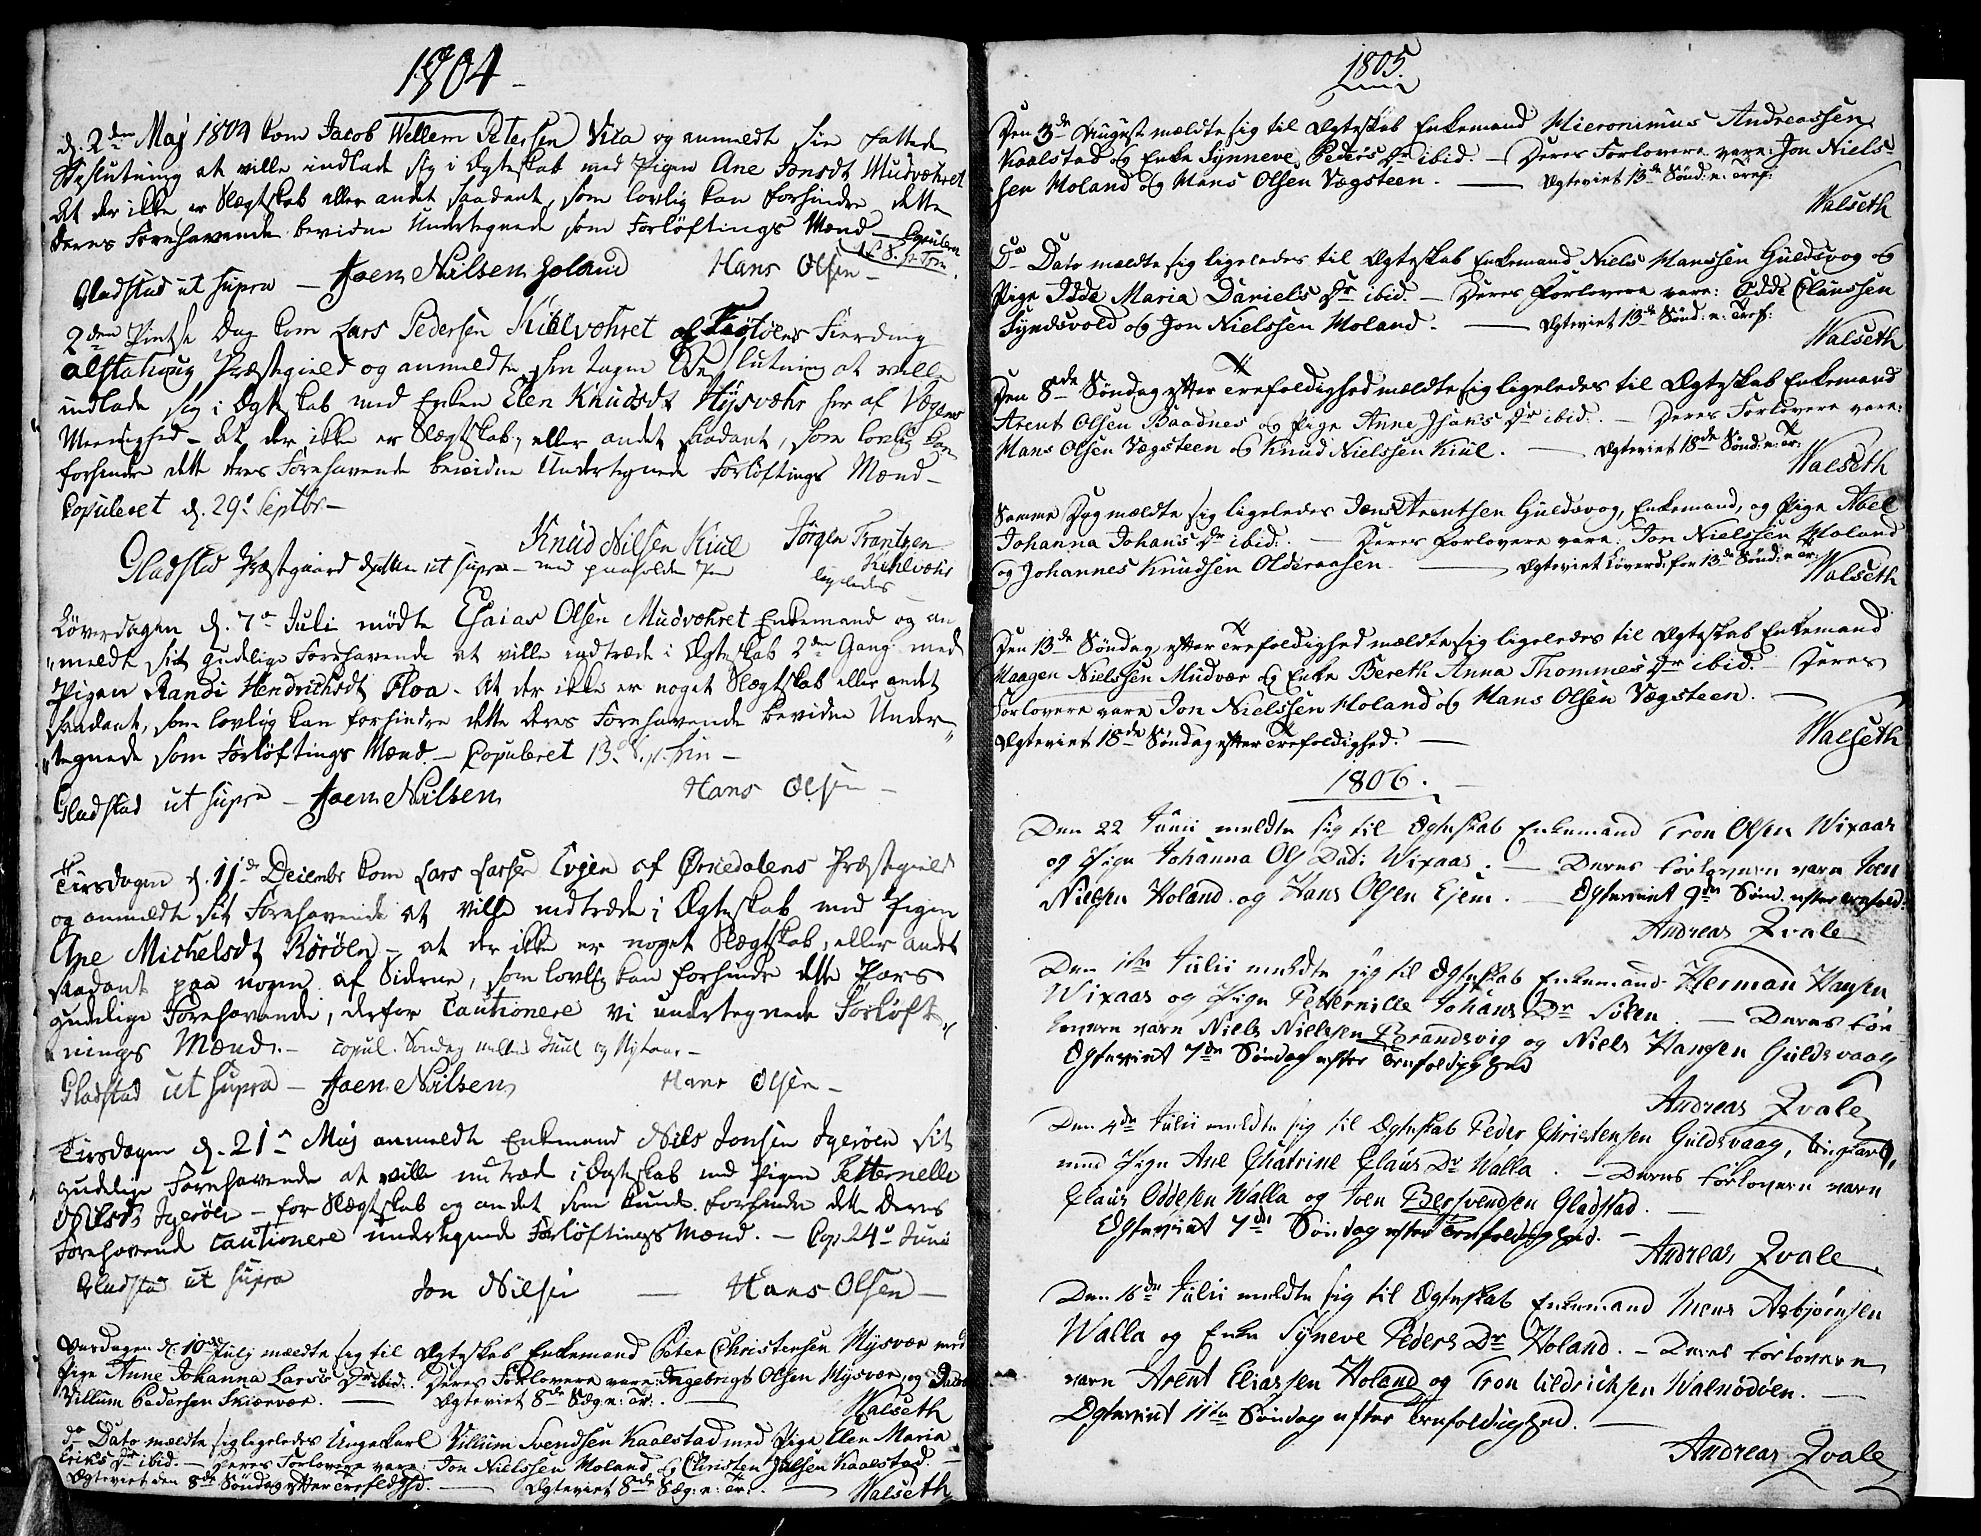 1804
d. 2den Maj 1804 kom Jacob Wellem Petersen Vixa og anmeldte sin fattede
Beslutning at ville indlade sig i Ægteskab med Pigen Ane Jonsdt Mudværet
At der ikke er Slægtskab eller andet saadant, som lovlig kan forhindre dette
deres Forehavende bevidne Undertegnede som Forløftings Mænd – Copuleret
Gladstad ut supra – Joen Nilsen Holand Hans Olsen –
2den Pintse Dag kom Lars Pedersen Kiilværet af Fierding
alstahoug Præstegield og anmeldte sin tagne Beslutning at ville
indlade sig i Ægteskab med Enken Elen Knudsdt Hysvær her af Vægens
Meenighed – At der ikke er Slægtskab, eller andet saadant, som lovlig kan
forhindre dette deres Forehavende bevidne Undertegnede Forløftings Mænd –
Copuleret d. 29. Septbr –
Knud Nilsen Kiil Jørgen Frantzen
Gladstad Præstegaard Datum ut supra – med paaholden Pen Kihlvær
ligeledes
Løverdagen d. 7de Juli mødte Esaias Olsen Mudværet Enkemand og an
meldte sit gudelige Forehavende at ville indtræde i Ægteskab 2den Gang med
Pigen Randi Hendrichsdt Floa. At der ikke er noget Slægtskab eller andet
saadant, som lovlig kan forhindre dette deres Forehavende bevidne Under
tegnede som Forløftings Mænd. – Copuleret 13. S. p. Trin –
Gladstad ut supra – Joen Nilsen Hans Olsen –
Tirsdagen d. 11te Decembr kom Lars Larsen af Ørkedalens Præstegield
og anmeldte sit Forehavende at ville indtræde i Ægteskab med Pigen
Ane Michelsdt Rørøen – at der ikke er noget Slægtskab, eller andet
saadant paa nogen af Siderne, som lovlig kan forhindre dette Pars
gudelige Forehavende, derfor Cautionere vi undertegnede Forløft
nings Mænd. – copul. Søndag mellem Juul og Nytaar –
Gladstad ut supra – Joen Nilsen Hans Olsen –
Tirsdagen d. 21de Maj anmeldte Enkemand Nils Jonsen Igerøen sit
gudelige Forehavende at ville indtræde i Ægteskab med Pigen Petternelle
Nilsdt Igerøen – for Slægtskab og andet som kunde forhindre dette deres
Forehavende Cautionere undertegnede Forløftings Mænd. – Cop. 24de Junii
Gladstad ut supra Jon Nilsen – Hans Olsen –
d. 10de July mældte sig til Ægteskab Enkemand Peter Christensen Hysvær med
Pige Anne Johanna Larsis Dr ibid. Deres Forlovere vare: Ingebrigt Olsen Hysvær, og Jacob
Villum Pedersen Skiærvær. – Ægteviet 8de Søg. e. Tr. – Walseth
do Dato mældte sig ligeledes Ungekarl Villum Svendsen Kaalstad med Pige Elen Maria
Eriks Dr ibid. – Deres Forlovere vare: Jon Nielssen Holand og Christen Julsen Kaalstad. –
Ægteviet den 8de Søndag efter Trefoldhd. – Ægteviet 8de Søg. e. Tr. – Walseth
1805.
Den 3de August mældte sig til Ægteskab Enkemand Hieronimus Andreassen
Kaalstad og Enke Synneve Peders Dr ibid. – Deres Forlovere vare: Jon Niels
sen Holand og Hans Olsen Vægsteen. – Ægteviet 13de Sønd. e. Tref.
Walseth
Do Dato mældte sig ligeledes til Ægteskab Enkemand Niels Hanssen Guldsvog og
Pige Idde Maria Daniels Dr ibid. – Deres Forlovere vare: Odde Clausen
Syndsvold og Jon Nielssen Holand. – Ægteviet 13de Sønd. e. Tref:
Walseth
Den 8de Søndag efter Trefoldighed mældte sig ligeledes til Ægteskab Enkemand
Arent Olsen Baadnes og Pige Anne Dr ibid. – Deres Forlovere vare:
Hans Olsen Vægsteen og Knud Nielssen Kiil. – Ægteviet 18de Sønd. e. Tr:
Walseth
Samme Dag mældte sig ligeledes Jens Arentsen Guldsvog, Enkemand, og Pige Abel
Johanna Johans Dr ibid. – Deres Forlovere vare: Jon Nielssen Holand
og Johannes Knudsen Olderaasen. – Ægteviet Løverd. for 13de Sønd. e. Tr:
Walseth
Den 13de Søndag efter Trefoldighed mældte sig ligeledes til Ægteskab Enkemand
Haagen Nielssen Mudvær og Enke Bereth Anna Thommes Dr ibid. – Deres
Forlovere vare Jon Nielssen Holand og Hans Olsen Vægsteen. –
Ægteviet 18de Søndag efter Trefoldighed. –
Walseth
1806.
Den 22 Junii meldte sig til Ægteskab Enkemand Tron Olsen Wixaas
og Pige Johanna Ols Datt. Wixaas. – Deres Forlovere vare Joen
Nielsen Holand og Hans Olsen Ejem. – Ægteviet 9de Sønd. efter Trefold:
Andreas Qvale
Den 1ste Julii meldte sig til Ægteskab Enkemand Herman Hansen
Wixaas og Pige Petternille Johans Dr Sølen. – Deres For
lovere vare Niels Nielsen Brandsvig og Niels Hansen Guldsvaag
Ægteviet 7de Søndag efter Trefoldighed
Andreas Qvale
Den 4de Julii meldte sig til Ægteskab Peder Christensen Guldsvaag, Ungkarl,
med Pige Ane Chatrine Claus Dr Walla. – Deres Forlovere vare
Claus Oddesen Walla og Joen Bersvendsen Gladstad. –
Ægteviet 7de Søndag efter Trefoldighed. –
Andreas Qvale
Den 16de Julii meldte sig til Ægteskab Enkemand Mens Asbjørnsen
Walla og Enke Syneve Peders Dr Holand. – Deres Forlovere
vare Arent Eliassen Holand og Tron Uldrichsen Walnødøen. –
Ægteviet 11te Søndag efter Trefoldighed. –
Andreas Qvale